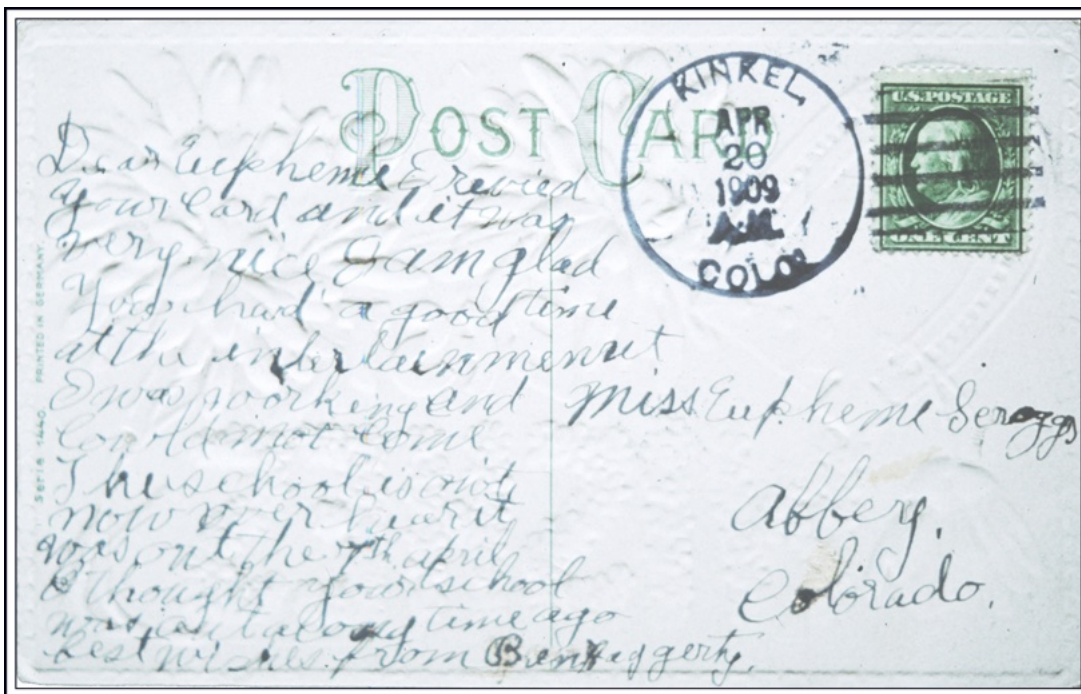 POST CARD
KINKEL,
APR
20
1909
A.M.
COLO.
U.S. POSTAGE
ONE CENT
Dear Eupheme I revied
your card and it was
very nice I am glad
you had a good time
at the intertainmenut
I was working and
Could not Come
The school is out
now over hear it
was out the 7th april
I thought your school
was out a long time ago
best wishes from Ben Heggerty.
Miss Eupheme Scroggs
Abbey,
Colorado.
Serie 1440. PRINTED IN GERMANY.